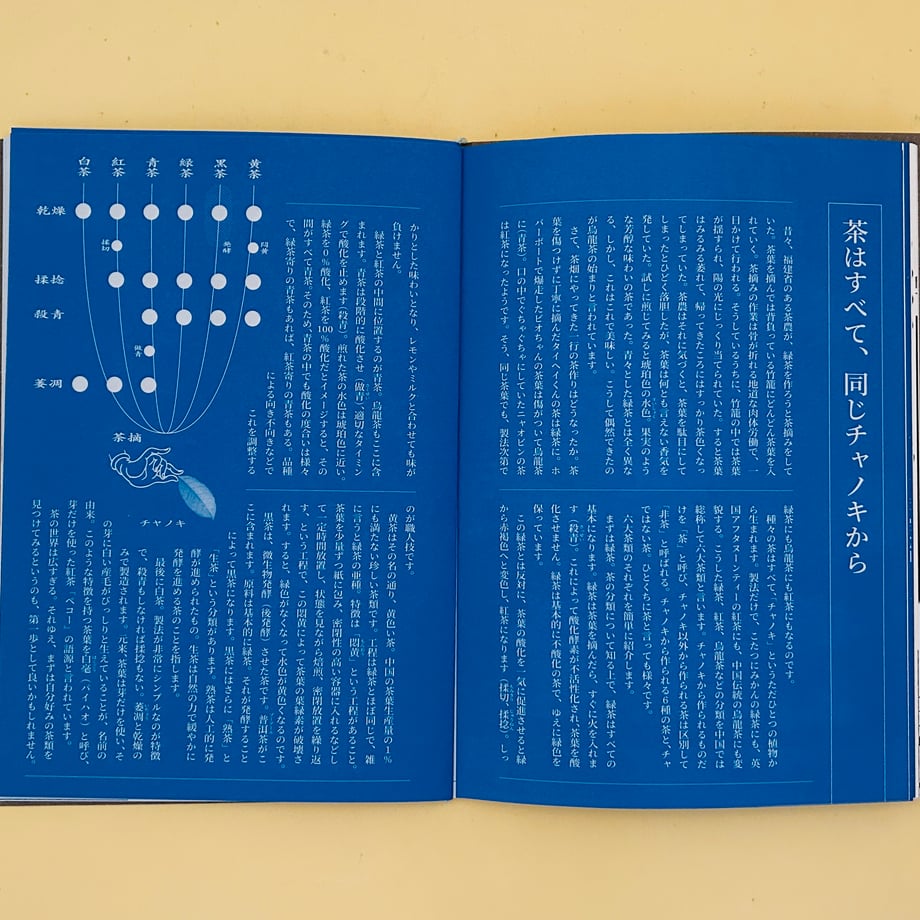 茶はすべて、同じチャノキから
昔々、福建省のある茶農が、緑茶を作ろうと茶摘みをして
いた。茶葉を摘んでは背負っている竹籠にどんどん茶葉を入
れていく。茶摘みの作業は骨が折れる地道な肉体労働で、一
日かけて行われる。そうしているうちに、竹籠の中では茶葉
が揺すられ、陽の光にじっくり当てられていた。すると茶葉
はみるみる萎れて、帰ってきたころにはすっかり茶色くなっ
てしまっていた。茶農はそれに気づくと、茶葉を駄目にして
しまったとひどく落胆したが、茶葉は何とも言えない香気を
発していた。試しに煎じてみると琥珀色の水色、果実のよう
な芳醇な味わいの茶であった。青々とした緑茶とは全く異な
る、しかし、これはこれで美味しい。こうして偶然できたの
が烏龍茶の始まりと言われています。
さて、茶畑にやってきた一行の茶作りはどうなったか。茶
葉を傷つけずに丁寧に摘んだタヘイくんの茶葉は緑茶に。ホ
バーボードで爆走したピオちゃんの茶葉は傷がついて烏龍茶
に（青茶）。口の中でぐちゃぐちゃにしていたニャオピンの茶
は紅茶になったようです。そう、同じ茶葉でも、製法次第で
緑茶にも烏龍茶にも紅茶にもなるのです。
種々の茶はすべて、「チャノキ」というたったひとつの植物か
ら生まれます。製法だけで、こたつにみかんの緑茶にも、英
国アフタヌーンティーの紅茶にも、中国伝統の烏龍茶にも変
貌する。こうした緑茶、紅茶、烏龍茶などの分類を中国では
総称して六大茶類と言います。チャノキから作られるものだ
けを「茶」と呼び、チャノキ以外から作られる茶は区別して
「非茶」と呼ばれる。チャノキから作られる6種の茶と、チャ
ではない茶、ひとくちに茶と言っても様々です。
六大茶類のそれぞれを簡単に紹介します。
まずは緑茶。茶の分類について知る上で、緑茶はすべての
基本になります。緑茶は茶葉を摘んだら、すぐに火を入れま
す（殺青）。これによって酸化酵素が不活性化され、茶葉を酸
化させません。緑茶は基本的に不酸化の茶で、ゆえに緑色を
保っています。
この緑茶とは反対に、茶葉の酸化を一気に促進させると緑
から赤褐色へと変色し、紅茶になります（揉切、揉捻）。しっ
かりとした味わいとなり、レモンやミルクと合わせても味が
負けません。
緑茶と紅茶の中間に位置するのが青茶。烏龍茶もここに含
まれます。青茶は段階的に酸化させ（做青）、適切なタイミン
グで酸化を止めます（殺青）。煎れた茶の水色は琥珀色に近い。
緑茶を0％酸化、紅茶を100％酸化だとイメージすると、その
間がすべて青茶。そのため、青茶の中でも酸化の度合いは様々
で、緑茶寄りの青茶もあれば、紅茶寄りの青茶もある。品種
による向き不向きなどで
これを調整する
のが職人技です。
黄茶はその名の通り、黄色い茶。中国の茶葉生産量の1％
にも満たない珍しい茶類です。工程は緑茶とほぼ同じで、雑
に言うと緑茶の亜種。特徴は「悶黄」という工程があること。
茶葉を少量ずつ紙に包み、密閉性の高い容器に入れるなどし
て一定時間放置し、状態を見ながら焙煎、密閉放置を繰り返
す、という工程で、この悶黄によって茶葉の葉緑素が破壊さ
れます。すると、緑色がなくなって水色が黄色くなるのです。
黒茶は、微生物発酵（後発酵）させた茶です。普洱茶がこ
こに含まれます。原料は基本的に緑茶、それが発酵すること
によって黒茶になります。黒茶にはさらに「熟茶」と
「生茶」という分類があります。熟茶は人工的に発
酵が進められたもの。生茶は自然の力で緩やかに
発酵を進める茶のことを指します。
最後に白茶。製法が非常にシンプルなのが特徴
で、殺青もしなければ揉捻もない。萎凋と乾燥の
みで製造されます。元来、茶葉は芽だけを使い、そ
の芽に白い産毛がびっしりと生えていることが、名前の
由来。このような特徴を持つ茶葉を白毫（パイハオ）と呼び、
芽だけを使った紅茶「ペコー」の語源と言われています。
茶の世界は広すぎる。それゆえ、まずは自分好みの茶類を
見つけてみるというのも、第一歩として良いかもしれません。
白茶 紅茶 青茶 緑茶 黒茶 黄茶
乾燥
揉切 発酵 悶黄
揉捻
殺青
做青
萎凋
茶摘
チャノキ